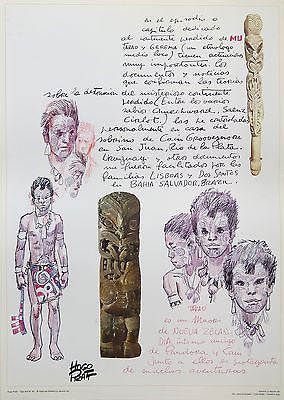 En este episodio o
capítulo dedicado
al continente perdido de MU
TARAO y GEREMIA (un etnólogo
medio loco) tienen actuaciones
muy importantes. Los
documentos y noticias
que conforman las teorías
sobre la destrucción del misterioso continente
perdido (Entre los varios
sabios: Churchward, Saenz,
Cirlot.) los he controlados
personalmente en casa del
sobrino de Cain Groovesnore
en San Juan, Rio de la Plata.
Uruguay y otros documentos
me fueron facilitados por las
familias LISBOAS y Dos Santos
en BAHIA SALVADOR, BRAZIL.
TARAO
es un Maori
de NUEVA ZELAN-
DIA, intimo amigo
de Pandora y Cain
Junto a ellos es protagonista
de muchas aventuras
HUGO
PRATT